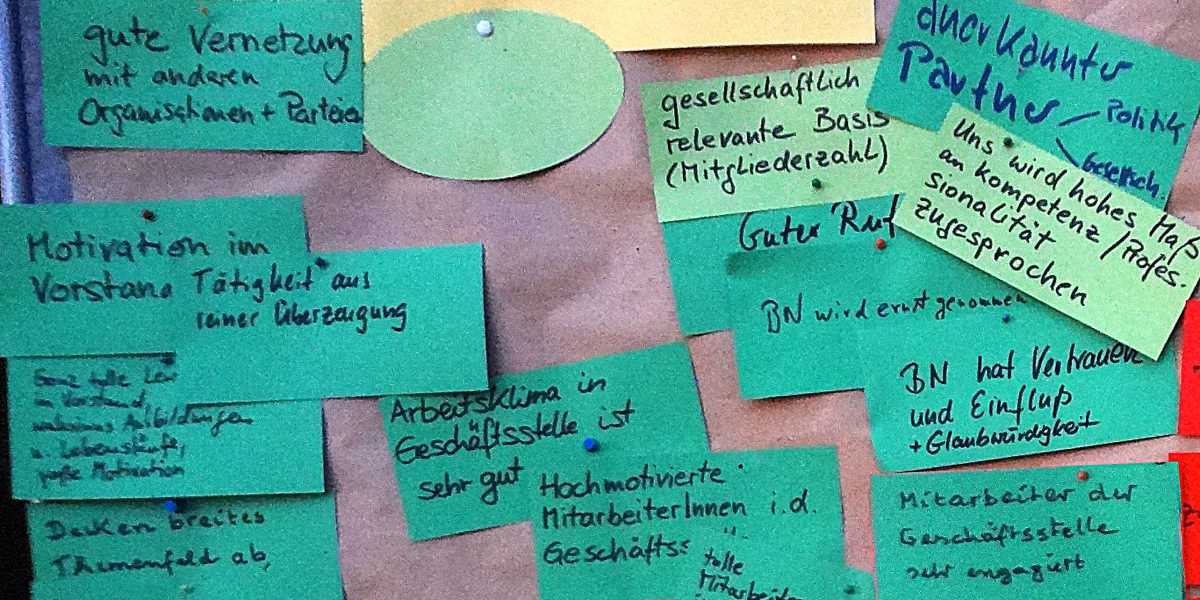 gute Vernetzung
mit anderen
Organisationen + Parteien
gesellschaftlich
relevante Basis
(Mitgliederzahl)
anerkannter
Partner
Politik
Gesellsch.
Uns wird hohes Maß
an kompetenz / Profes.
sionalität
zugesprochen
Guter Ruf
BN wird ernst genommen
BN hat Vertrauen
und Einfluß
+ Glaubwürdigkeit
Motivation im
Vorstand
Tätigkeit aus
reiner Überzeugung
Ganz tolle
im Vorstand,
Ausbildungen
u. Lebensläufe,
große Motivation
Decken breites
Themenfeld ab,
Arbeitsklima in
Geschäftsstelle ist
sehr gut
Hochmotivierte
MitarbeiterInnen i.d.
Geschäfts
tolle
Mitarbeiter
Mitarbeiter der
Geschäftsstelle
sehr engagiert